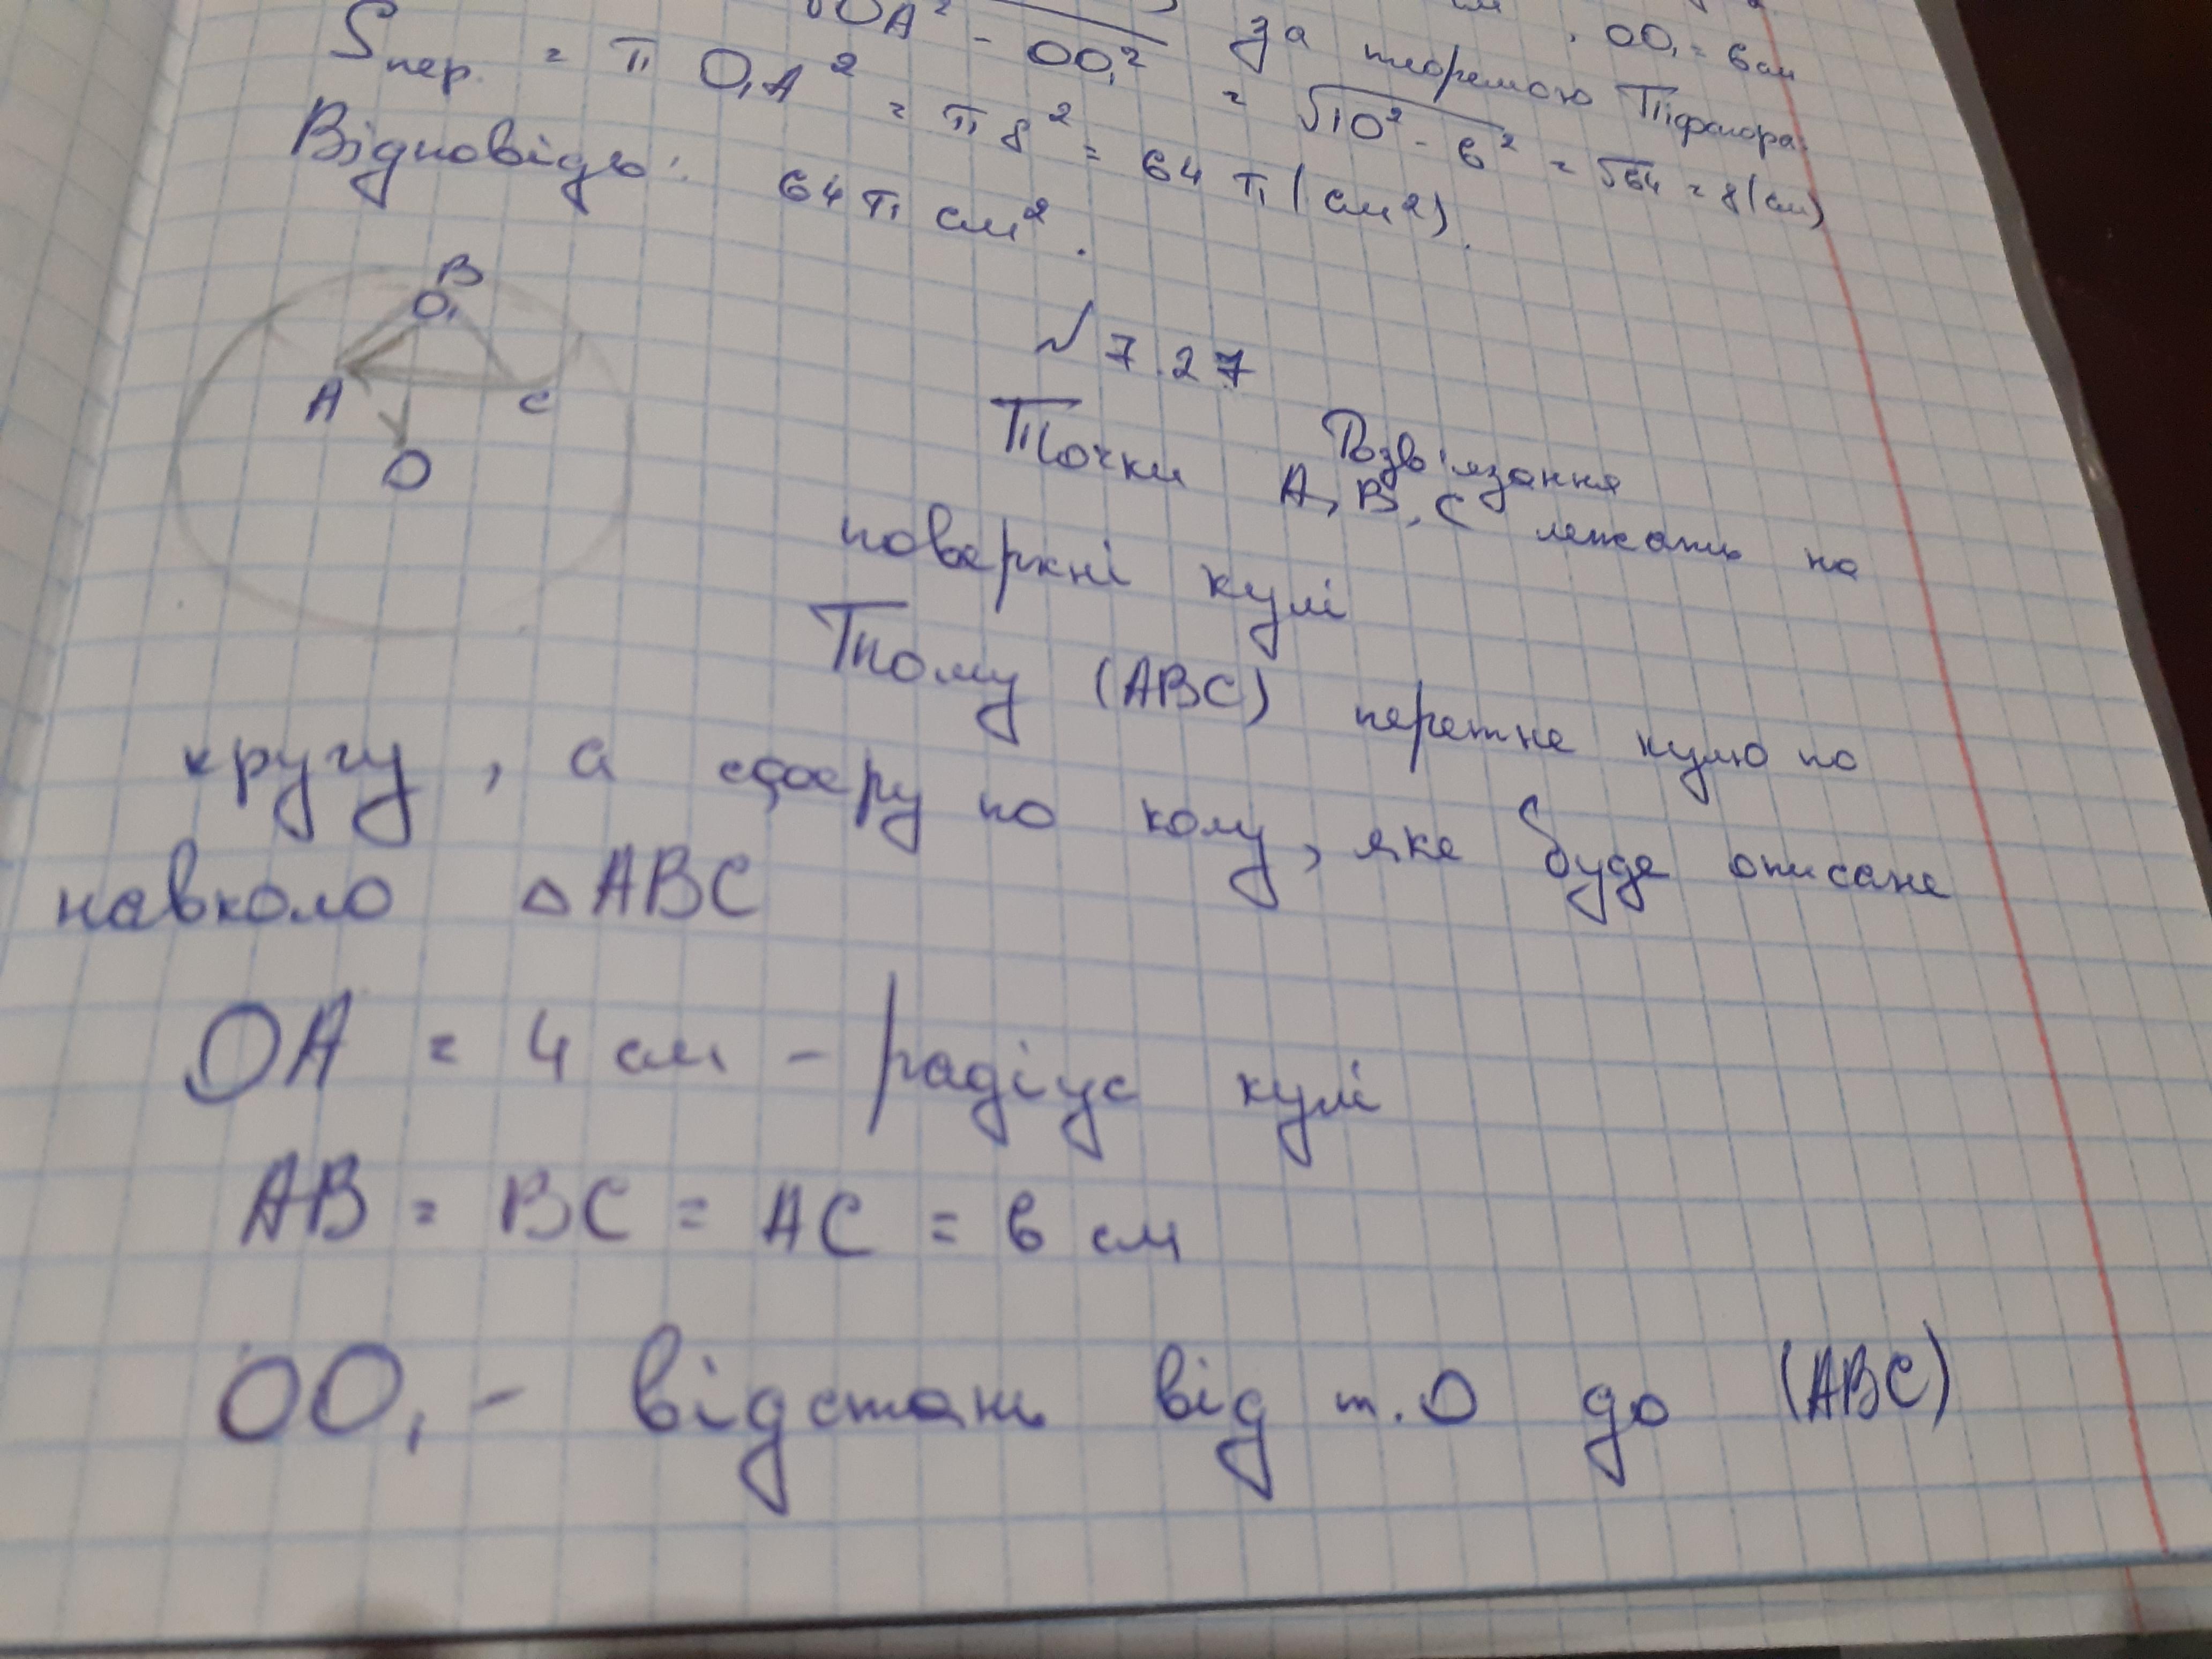 OO₁ = 6 см
√OA² - OO₁² за теоремою Піфагора:
= √10² - 6² = √64 = 8 (см)
Sпер. = π O₁A² = π 8² = 64 π (см²).
Відповідь: 64 π см².
B
O₁
A
C
O
№ 7.27
Розв'язання
Точки A, B, C лежать на
поверхні кулі
Тому (ABC) перетне кулю по
кругу, а сферу по колу, яке буде описане
навколо △ABC
OA = 4 см - радіус кулі
AB = BC = AC = 6 см
OO₁ - відстань від т. O до (ABC)